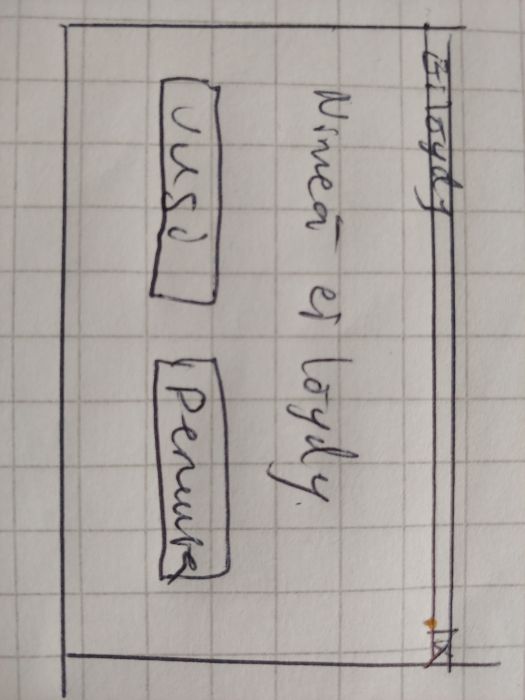 Ei löydy X
Nimeä ei löydy.
Uusi Peruuta